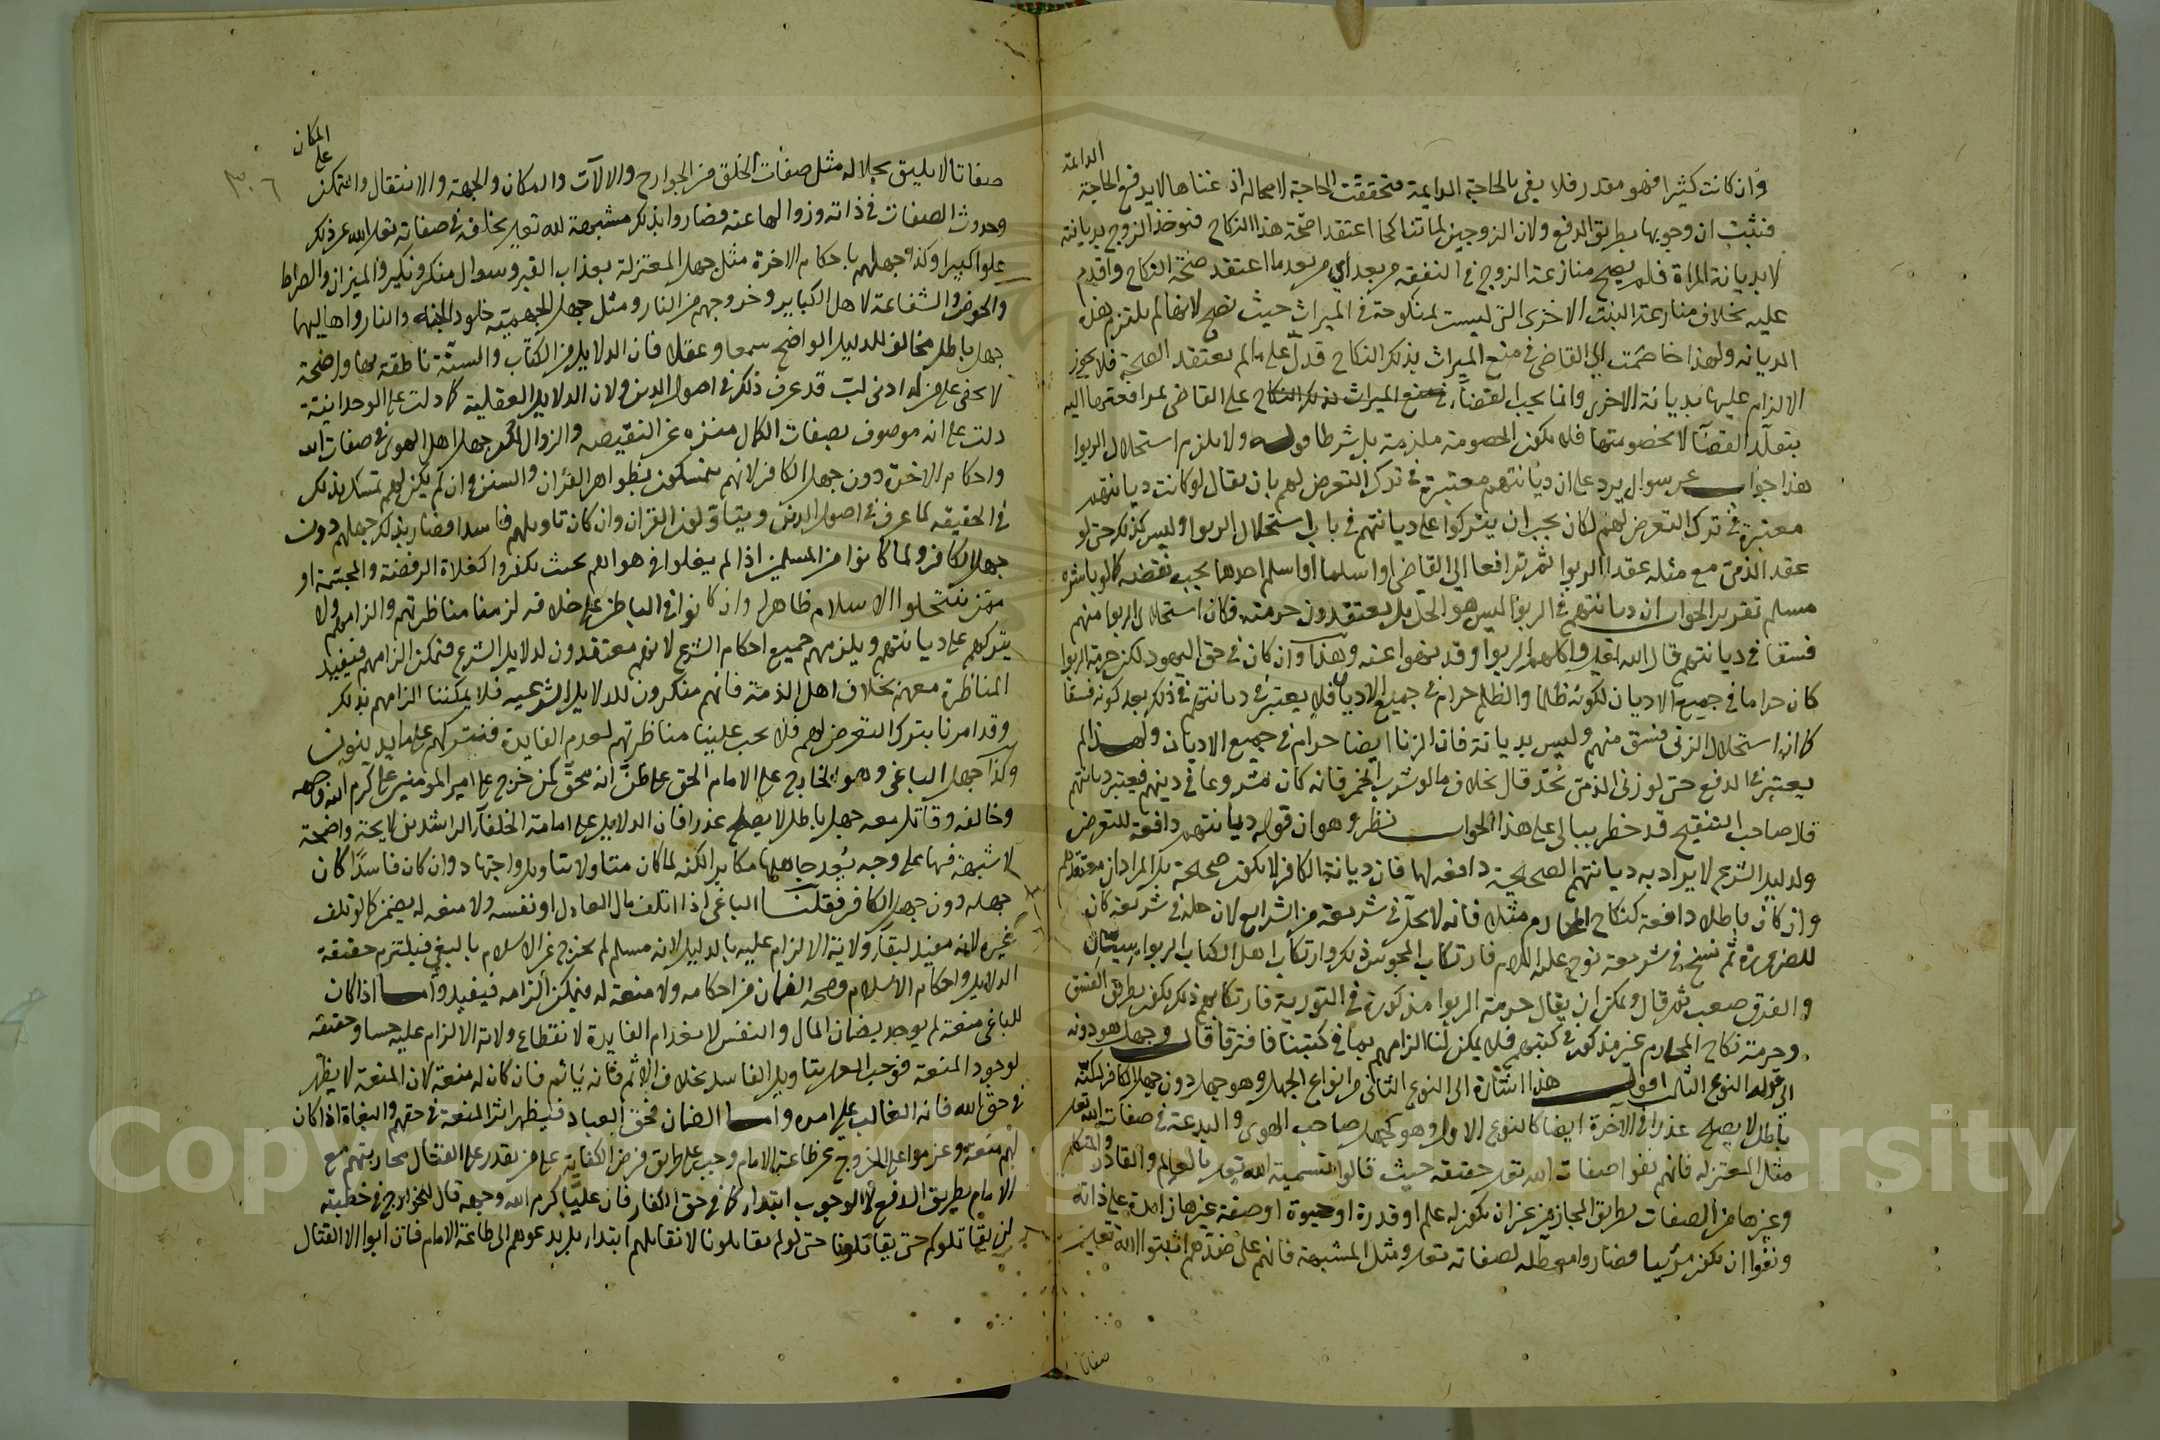 الدائمة
وان كانت كثيرا فهو مقدر فلا يفي بالحاجة الدايمة فتحققت الحاجة لا محالة اذ غناها لا يدفع الحاجة
فثبت ان وجوبها بطريق الدفع ولان الزوجين لما تناكحا اعتقدا صحة هذا النكاح فنوخذ الزوج بديانته
لا بديانة المراة فلم يصح منازعة الزوج في النفقه من بعد اي من بعد ما اعتقد صحة النكاح واقدم
عليه بخلاف منازعة البنت الاخرى التي ليست بمنكوحة في الميراث حيث تصح لانها لم تلتزم هذه
الديانه ولهذا خاصمت الي القاضي في منع الميراث بذلك النكاح فدل على ما لم يعتقد الصحة فلا يجوز
الالزام عليها بديانة الاخرى وانما يجب القضاء في منع الميراث بذلك النكاح على القاضي لمرافعتهما اليه
بتقلد القضا لا بخصومتها فلا تكون الخصومة ملزمة بل شرطا قوله ولا يلزم استحلال الربوا
هذا جواب عن سوال يرد على ان ديانتهم معتبرة في ترك التعرض لهم بان يقال لو كانت ديانتهم
معتبرة في ترك التعرض لهم لكان يجب ان يتركوا على ديانتهم في باب استحلال الربوا وليس كذلك حتى لو
عقد الذمي مع مثله عقد الربوا ثم ترافعا الى القاضي او اسلما او اسلم احدهما يجب نقضه كما لو باشره
مسلم تقرير الجواب ان ديانتهم في الربوا ليس هو الحل بل يعتقدون حرمته فكان استحلال الربوا منهم
فسقا في ديانتهم قال الله تعالى واكلهم الربوا وقد نهوا عنه وهذا وان كان في حق اليهود لكن حرمة الربوا
كان حراما في جميع الاديان لكونه ظلما والظلم حرام في جميع الاديان فلا يعتبر في ديانتهم في ذلك بعد كونه فسقا
كما ان استحلال الزنى فسق منهم وليس بديانة فان الزنا ايضا حرام في جميع الاديان ولهذا لم
يعتبر في الدفع حتى لو زنى الذمي يحد قال بخلاف ما لو شرب الخمر فانه كان مشروعا في دينهم فيعتبر ديانتهم
قال صاحب التنقيح قد خطر ببالي على هذا الجواب نظر وهو ان قوله ديانتهم دافعة للتعرض
ولدليل الشرع لا يراد به ديانتهم الصحيحة دافعه لها فان ديانة الكافر لا تكون صحيحة بل المراد ان معتقدهم
وان كان باطلا دافعة كنكاح المحارم مثلا فانه لا يحل في شريعة من الشرايع لان حله في شريعة كان
للضرورة ثم نسخ في شريعة نوح عليه السلام فارتكاب المجوس ذلك وارتكاب اهل الكتاب الربوا سيان
والفرق صعب ثم قال ويمكن ان يقال حرمة الربوا مذكورة في التورية فارتكابهم ذلك يكون بطريق الفسق
وحرمة نكاح المحارم غير مذكور في كتبهم فلا يمكن لنا الزامهم بما في كتبنا فافترقا قال وجهل هو دونه
الى قوله النوع الثالث اقول هذا اشارة الى النوع الثاني من انواع الجهل وهو جهل دون جهل الكافر لكنه
باطل لا يصلح عذرا في الآخرة ايضا كالنوع الاول وهو كجهل صاحب الهوى والبدعة في صفات الله تعالى
مثل المعتزله فانهم نفوا صفات الله تعالى حقيقه حيث قالوا تسمية الله تعالى بالعالم والقادر والمتكلم
وغيرها من الصفات بطريق المجاز من غير ان يكون له علم او قدرة او حيوة او صفة غيرها زايدة على ذاته
ونفوا ان يكون مرئيا فصاروا معطلة لصفاته تعالى ومثل المشبهة فانهم على ضدهم اثبتوا لله تعالى
صفاتا
٣٠٦
المكان
على
صفاتا لا يليق بجلاله مثل صفات الخلق من الجوارح والالات والمكان والجهة والانتقال والتمكن
وحدوث الصفات في ذاته وزوالها عنه فصاروا بذلك مشبهة لله تعالى بخلقه في صفاته تعالى الله عن ذلك
علوا كبيرا وكذا جهلهم باحكام الاخرة مثل جهل المعتزلة بعذاب القبر وسوال منكر ونكير والميزان والصراط
والحوض والشفاعة لاهل الكباير وخروجهم من النار ومثل جهل الجهمية خلود الجنة والنار واهاليهما
جهل باطل مخالف للدليل الواضح سمعا وعقلا فان الدلايل من الكتاب والسنة ناطقة بها واضحة
لا يخفى على من له ادنى لب قد عرف ذلك في اصول الدين ولان الدلايل العقلية كما دلت على الوحدانية
دلت على انه موصوف بصفات الكمال منزه عن النقيصه والزوال لكن جهل اهل الهوى في صفات الله
واحكام الاخرة دون جهل الكافر لانهم يتمسكون بظواهر القرآن والسنن وان لم يكن لهم تمسك بذلك
في الحقيقه لما عرف في اصول الدين ويتاولون القران وان كان تاويلهم فاسدا فصار بذلك جهلهم دون
جهل الكافر ولما كانوا من المسلمين اذا لم يغلوا في هوائهم بحيث يكفروا كغلاة الرفضة والمجسمة او
ممن ينتحلوا الاسلام ظاهرا وان كانوا في الباطن على خلافه لزمنا مناظرتهم والزامهم ولا
يتركهم على ديانتهم ويلزمهم جميع احكام الشرع لانهم معتقدون لدلايل الشرع فيمكن الزامهم فيفيد
المناظرة معهم بخلاف اهل الذمة فانهم منكرون للدلايل الشرعيه فلا يمكننا الزامهم بذلك
وقد امرنا بترك التعرض لهم فلا يجب علينا مناظرتهم لعدم الفايدة فنتركهم على ما يدينون
وكذا جهل الباغي وهو الخارج على الامام الحق على ظن انه محق كمن خرج على امير المومنين على كرم الله وجهه
وخالفه وقاتل معه جهل باطل لا يصلح عذرا فان الدلايل على امامة الخلفاء الراشدين لايحة واضحة
لا شبهة فيها على وجه يعد جاهلها مكابرا لكنه لما كان متاولا بتاويل واجتهاد وان كان فاسدا كان
جهله دون جهل الكافر فقلنا الباغي اذا اتلف مال العادل او نفسه ولا منعه له يضمن كما لو تلف
غيره لانه مفيد لبقاء ولاية الالزام عليه بالدليل لانه مسلم لم يخرج عن الاسلام بالبغي فيلتزم حقيقة
الدلايل واحكام الاسلام وصحه الضمان من احكامه ولا منعة له فيمكن الزامه فيفيد واما اذا كان
للباغي منعة لم يوجد بضمان المال والنفس لانعدام الفايدة لانقطاع ولاية الالزام عليه حسا وحقيقة
لوجود المنعة فوجب العمل بتاويل الفاسد بخلاف الاثم فانه ياثم فان كان له منعة لان المنعة لا يظهر
في حق الله فانه الغالب على امره واما الضمان فحق العباد فيظهر اثر المنعة في حقهم والبغاة اذا كان
لهم منعة وعزموا على الخروج عن طاعة الامام وجب على طريق فرض الكفاية على من يقدر على القتال محاربتهم مع
الامام بطريق الدفع لا الوجوب ابتداء كما في حق الكفار فان عليا كرم الله وجهه قال للخوارج في خطبته
لن نقاتلوكم حتى يقاتلونا حتى لو لم يقاتلونا لا نقاتلهم ابتداء بل يدعوهم الى طاعة الامام فان ابوا الا القتال